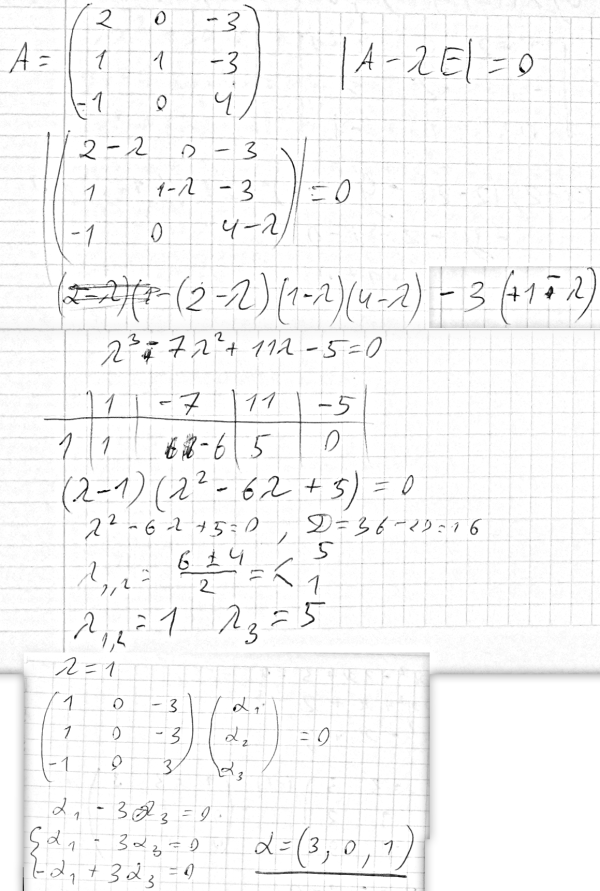 A = ( 2 0 -3 ) |A - λE| = 0
( 1 1 -3 )
( -1 0 4 )
|( 2-λ 0 -3 )|
|( 1 1-λ -3 )| = 0
|( -1 0 4-λ )|
(2-λ)(1-(2-λ)(1-λ)(4-λ) - 3(+1-λ)
λ³ - 7λ² + 11λ - 5 = 0
| 1 | -7 | 11 | -5 |
1 | 1 | -6 | 5 | 0
(λ-1)(λ² - 6λ + 5) = 0
λ² - 6λ + 5 = 0 , D = 36 - 20 = 16
λ₁,₂ = (6 ± 4)/2 = < 5 1
λ₁,₂ = 1 λ₃ = 5
λ = 1
( 1 0 -3 ) ( α₁ )
( 1 0 -3 ) ( α₂ ) = 0
( -1 0 3 ) ( α₃ )
α₁ - 3α₃ = 0
{ α₁ - 3α₃ = 0 α = (3, 0, 1)
-α₁ + 3α₃ = 0